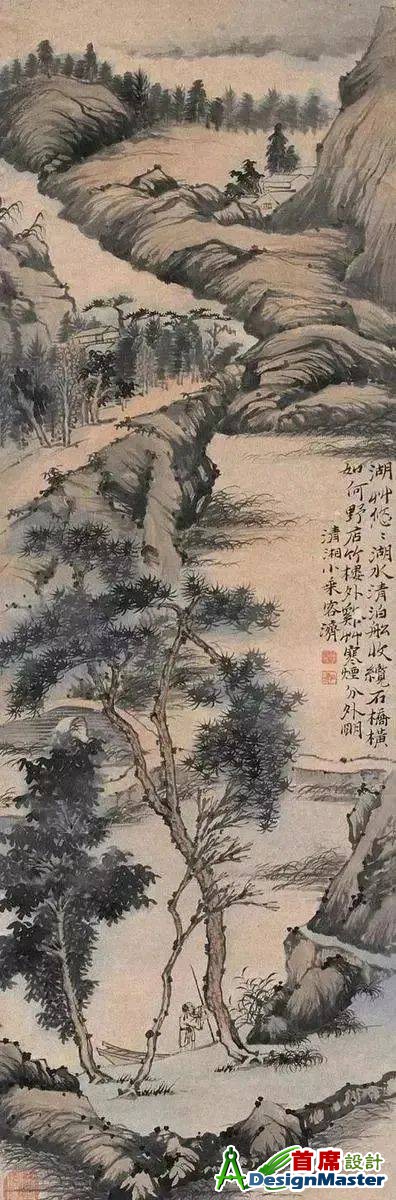 湖艸悠〻湖水清泊船收纜石橋橫
如何野店竹樓外艸寒煙分外明
清湘小乘客濟
首席設計
ADesignMaster